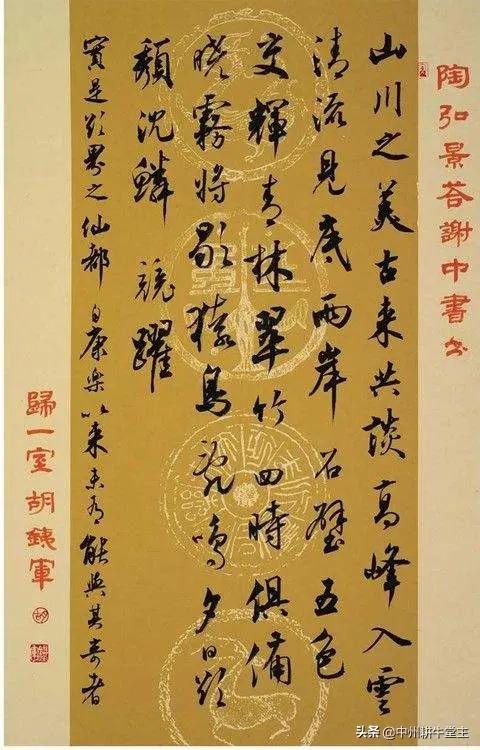 陶弘景荅謝中書書
山川之美古来共談高峰入雲
清流見底兩岸石壁五色
交輝青林翠竹四時俱備
曉霧將歇猿鳥亂鳴夕日欲
頹沈鱗競躍
實是欲界之仙都自康樂以来未有能與其奇者
歸一室胡銕軍
头条 @中州耕牛堂主